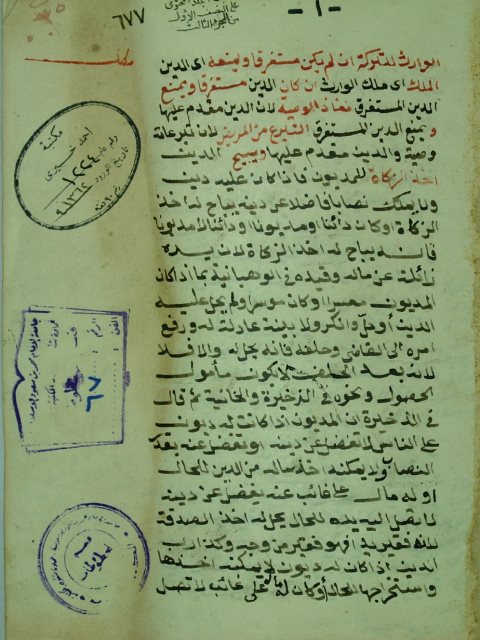 ٦٧٧
- ١ -
الوارث للتركة ان لم يكن مستغرقا ويمنعه اى الدين
الملك اى ملك الوارث ان كان الدين مستغرقا ويمنع
الدين المستغرق نفاذ الوصية لان الدين مقدم عليها
ويمنع الدين المستغرق التبرع من المريض لان تبرعاته
وصية والدين مقدم عليها ويبيح الدين
اخذ الزكاة للمديون فاذا كان عليه دين
ولا يملك نصابا فاضلا عن دينه يباح له اخذ
الزكاة وكان دائنا ومديونا ودائنا لا مديونا
فانه يباح له اخذ الزكاة لان يده
زائلة عن ماله وقيده في الوهبانية بما اذا كان
المديون معسرا او كان موسرا ولم يحل عليه
الدين أو حل وانكر ولا بينة عادلة له ورفع
امره الى القاضي وحلفه فانه يحل له والا فلا
لانه بعد الحلف لا يكون مأمول
الحصول ونحوه في الذخيرة والخانية ثم قال
في الذخيرة ان المديون اذا كانت له ديون
على الناس لا تفضل عن دينه او تفضل عنه بعد
النصاب ولا يمكنه اخذ ماله من الدين للحال
او له مال على غائب عنه يفضل عن دينه
لا تصل اليه يده للحال يحل له اخذ الصدقة
لانه فقير يد افهو فقير من وجه وكذا رب
الدين اذا كان له ديون لا يمكنه اخذها
واستخراجها للحال أو كان له مال على غائب لا تصل
مكتبة
احمد خيرى
رقم عام ١٢٢٤
تاريخ الورود
الفن
الرقم
٦٧
قسم
المخطوطات